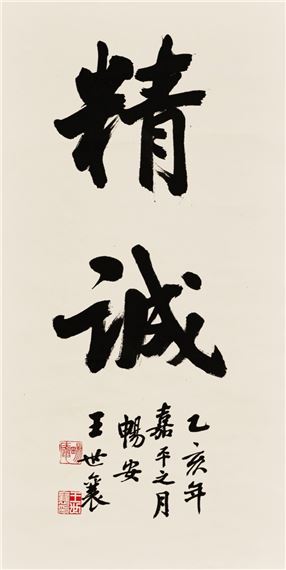 精
誠
乙亥年
嘉平之月
暢安
王世襄